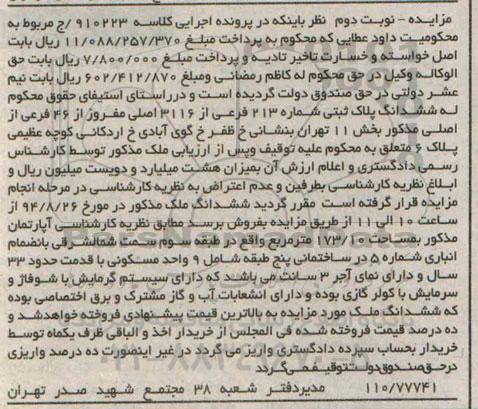 مزایده - نوبت دوم نظر باینکه در پرونده اجرایی کلاسه ۹۱۰۲۲۳ /ج مربوط به
محکومیت داود عطایی که محکوم به پرداخت مبلغ ۱۱/۰۸۸/۲۵۷/۳۷۰ ریال بابت
اصل خواسته و خسارت تاخیر تادیه و پرداخت مبلغ ۷/۸۰۰/۰۰۰ ریال بابت حق
الوکاله وکیل در حق محکوم له کاظم رمضانی ومبلغ ۶۰۲/۴۱۲/۸۷۰ ریال بابت نیم
عشر دولتی در حق صندوق دولت گردیده است و درراستای استیفای حقوق محکوم
له ششدانگ پلاک ثبتی شماره ۲۱۳ فرعی از ۳۱۱۶ اصلی مفروز از ۴۶ فرعی از
اصلی مذکور بخش ۱۱ تهران بنشانی خ ظفر خ گوی آبادی خ اردکانی کوچه عظیمی
پلاک ۶ متعلق به محکوم علیه توقیف وپس از ارزیابی ملک مذکور توسط کارشناس
رسمی دادگستری و اعلام ارزش آن بمیزان هشت میلیارد و دویست میلیون ریال و
ابلاغ نظریه کارشناسی بطرفین و عدم اعتراض به نظریه کارشناسی در مرحله انجام
مزایده قرار گرفته است مقرر گردید ششدانگ ملک مذکور در مورخ ۹۴/۸/۲۶ از
ساعت ۱۰ الی ۱۱ از طریق مزایده بفروش برسد مطابق نظریه کارشناسی آپارتمان
مذکور بمساحت ۱۷۳/۱۰ مترمربع واقع در طبقه سوم سمت شمالشرقی بانضمام
انباری شماره ۵ در ساختمانی پنج طبقه شامل ۹ واحد مسکونی با قدمت حدود ۳۳
سال و دارای نمای آجر ۳ سانت می باشد که دارای سیستم گرمایش با شوفاژ و
سرمایش با کولر گازی بوده و دارای انشعابات آب و گاز مشترک و برق اختصاصی بوده
که ششدانگ ملک مورد مزایده به بالاترین قیمت پیشنهادی فروخته خواهدشد و
ده درصد قیمت فروخته شده فی المجلس از خریدار اخذ و الباقی ظرف یکماه توسط
خریدار بحساب سپرده دادگستری واریز می گردد در غیر اینصورت ده درصد واریزی
درحق صندوق دولت توقیف می گردد
۱۱۰/۷۷۷۴۱ مدیردفتر شعبه ۳۸ مجتمع شهید صدر تهران